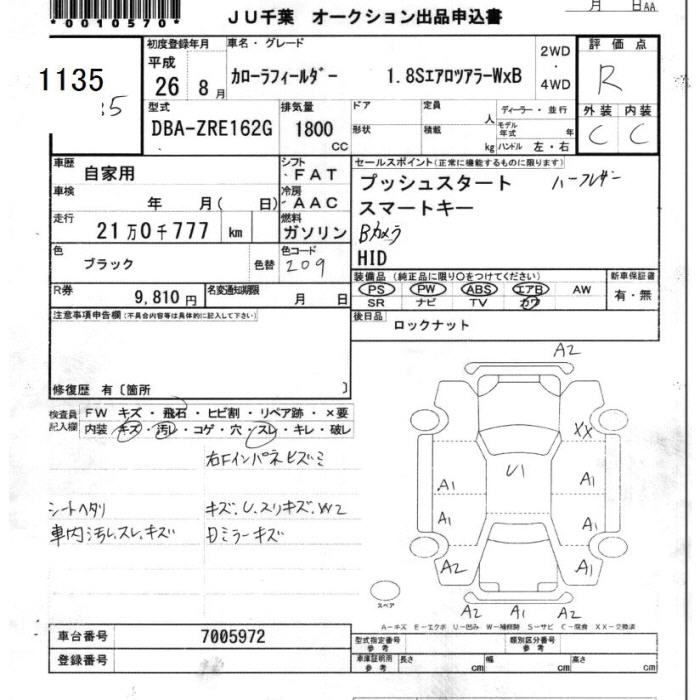 *0010570*
JU千葉 オークション出品申込書
月 日AA
1135
:5
初度登録年月
平成
26 8月
車名・グレード
カローラフィールダー 1.8SエアロツアラーWxB
2WD
・
4WD
評価点
R
外装 内装
C C
型式
DBA-ZRE162G
排気量
1800
CC
ドア
形状
定員
人
積載
kg
ディーラー・並行
モデル年式 年
ハンドル 左・右
車歴
自家用
シフト
FAT
車検
年 月( 日)
冷房
AAC
走行
21万0千777 km
燃料
ガソリン
色
ブラック
色替
色コード
209
R券
9,810円
名変通知期限
月 日
セールスポイント(正常に機能するものに限ります)
プッシュスタート ハーフレザー
スマートキー
Bカメラ
HID
装備品 (純正品に限り○をつけてください)
PS PW ABS エアB AW
SR ナビ TV カワ
新車保証書
有・無
後日品
ロックナット
注意事項申告欄(不具合内容等は具体的に記入して下さい)
修復歴 有〔箇所 〕
検査員記入欄
FW キズ・飛石・ヒビ割・リペア跡・×要
内装 キズ・汚レ・コゲ・穴・スレ・キレ・破レ
右Fインパネヒズミ
シートヘタリ キズ、U、スリキズ、W2
車内汚レ、スレ、キズ 日ミラーキズ
A2
XX
U1
A1 A1
A1 A1
A2 A1
A2 A1 A2
スペア
A-キズ E-エクボ U-凹み W-補修跡 S-サビ C-腐食 XX-交換済
車台番号 7005972
登録番号
型式指定番号 参考
類別区分番号 参考
車庫証明用 参考
長さ cm 幅 cm 高さ cm